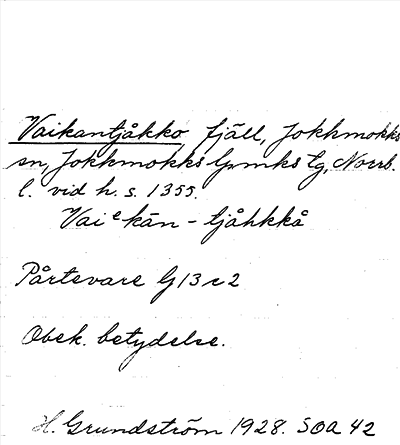 Vaikantjåkko fjäll, Jokkmokks
sn, Jokkmokks lpmks tg, Norrb.
l. vid h. s. 1355.
Vaiᵉkān - tjåhkkå
Pårtevare G 13 r 2
Obek. betydelse.
H. Grundström 1928. SOA 42